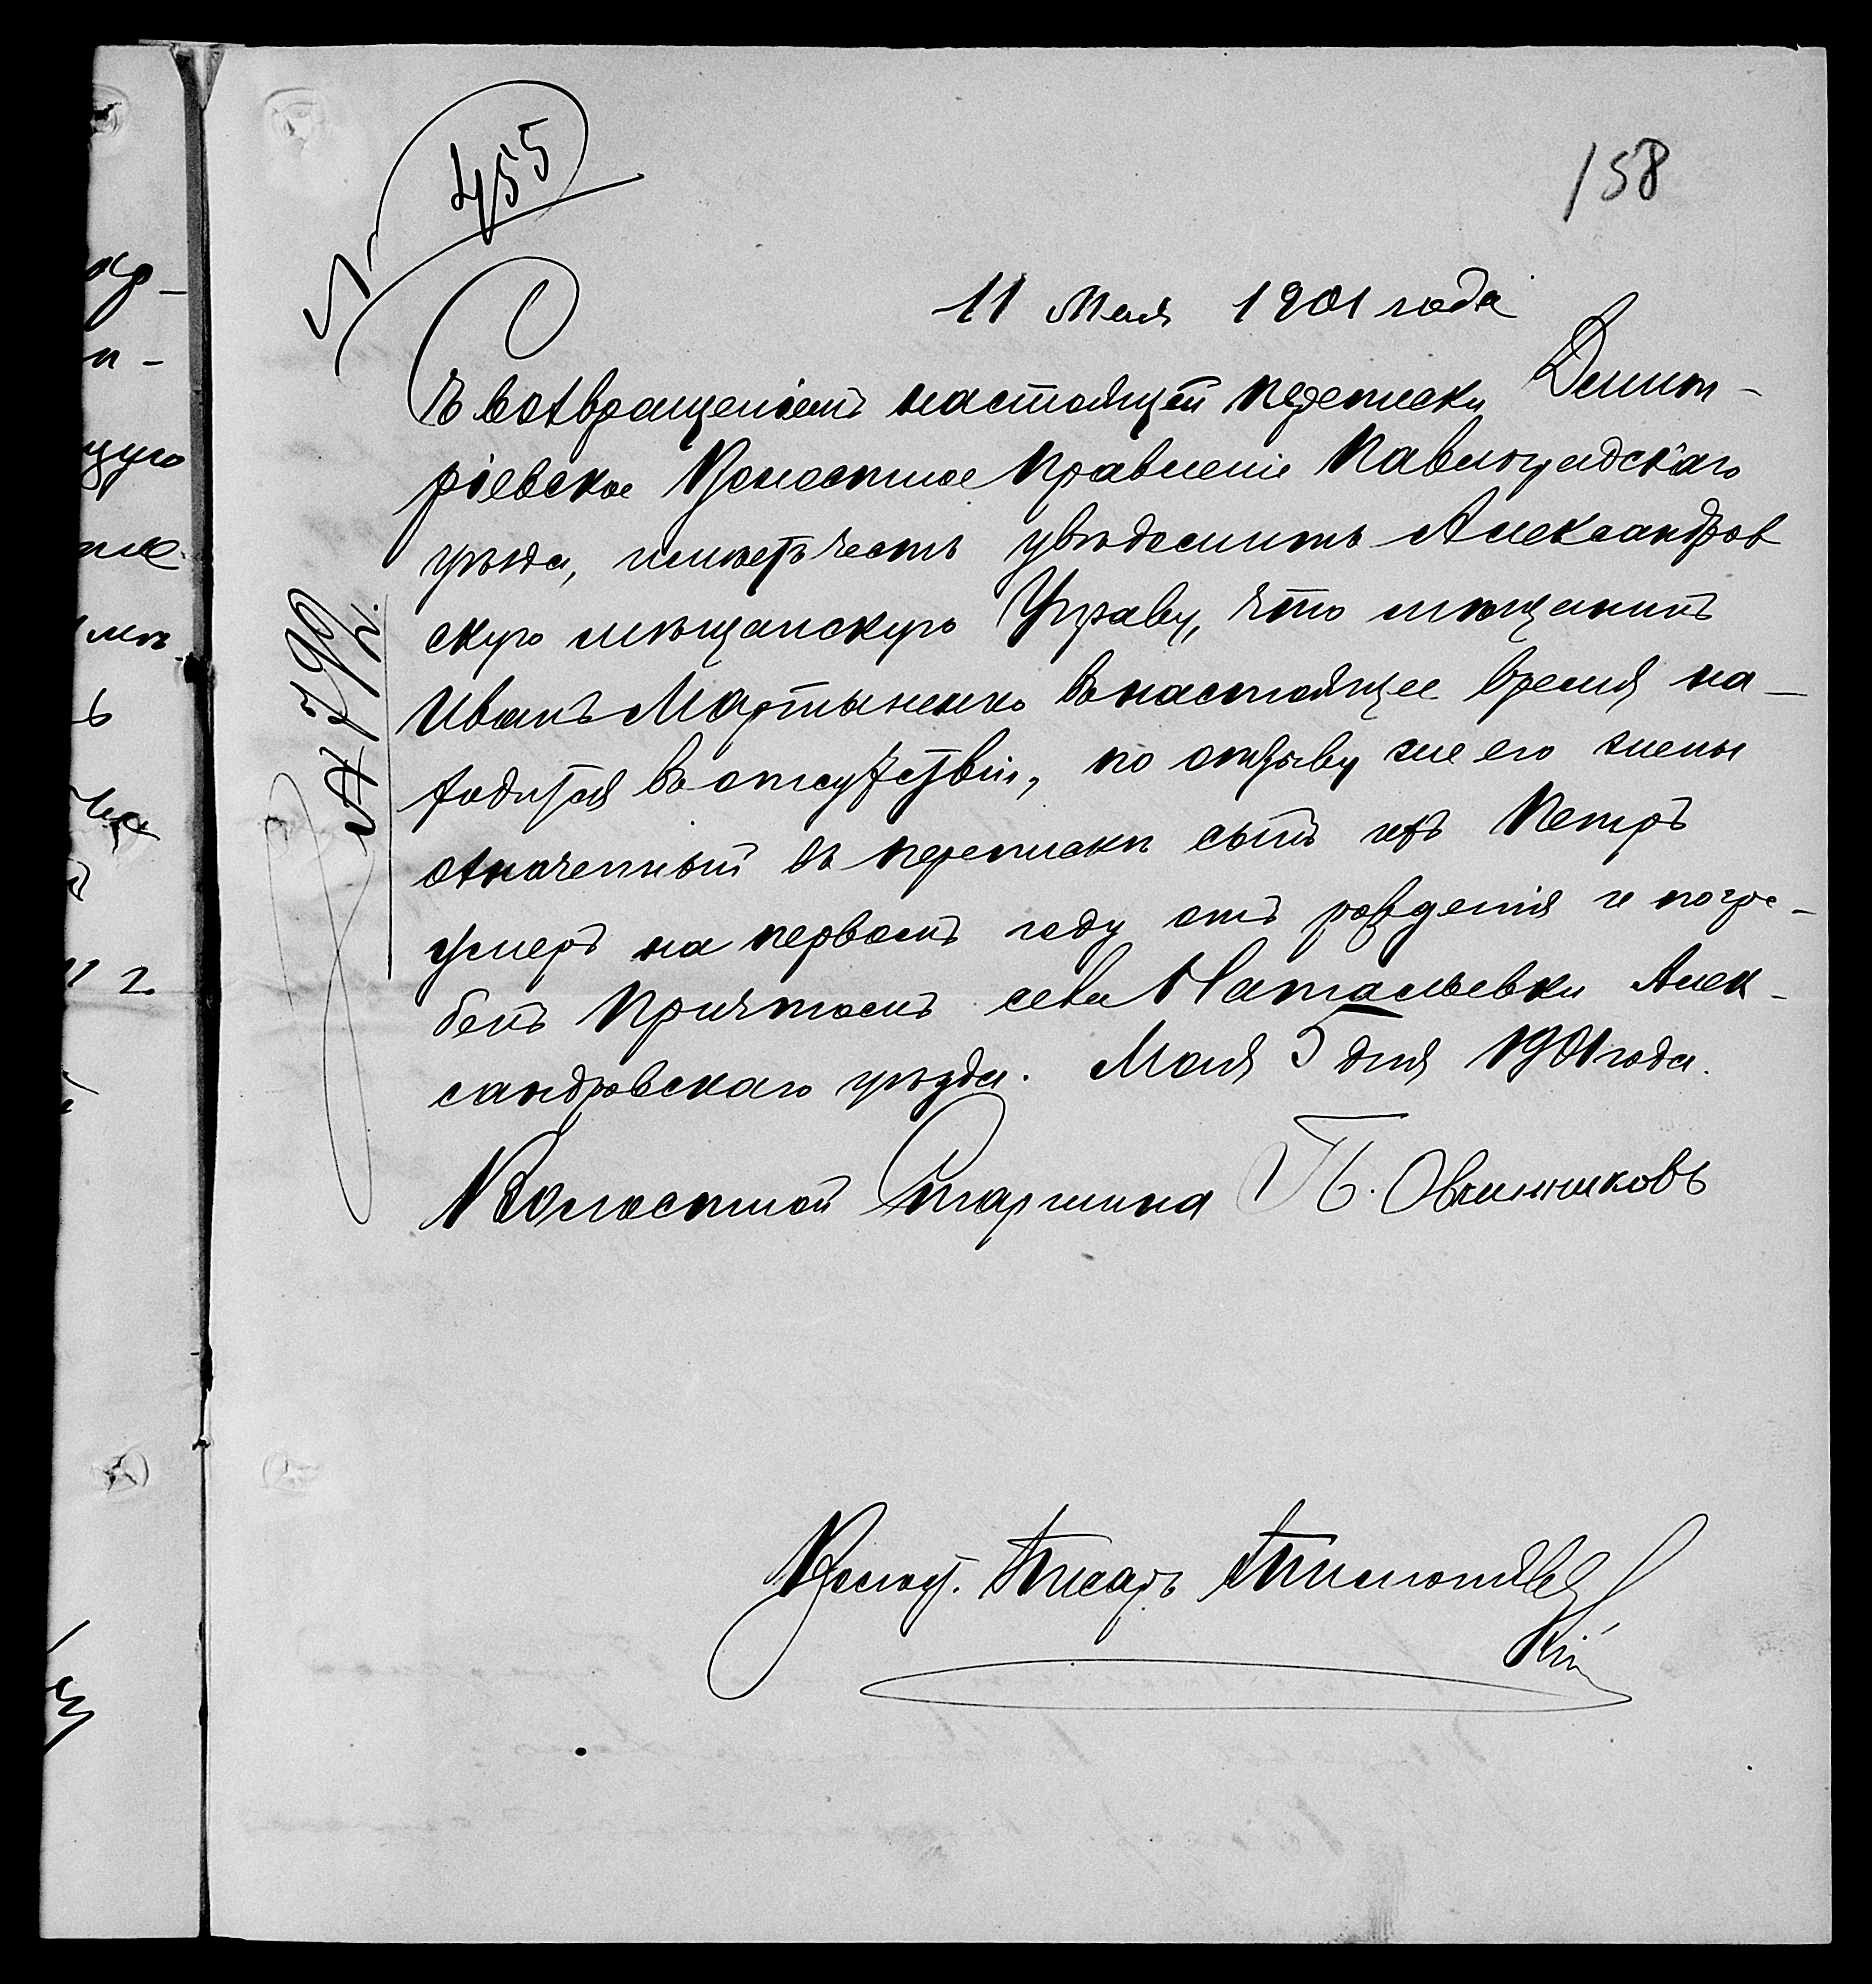 № 455
158
11 Мая 1901 года
Съ возвращеніемъ настоящей переписки Дмит-
ріевское Волостное Правленіе Павлоградскаго
уѣзда, имѣетъ честь увѣдомить Александров
скую мѣщанскую Управу, что мѣщанинъ
Иванъ Мартыненко въ настоящее время на-
ходится въ отсутствіи, по отзыву же его жены
означенный въ перепискѣ сынъ ихъ Петръ
умеръ на первомъ году отъ рожденія и погре-
бенъ причтомъ села Натальевки Алек-
сандровскаго уѣзда. Мая 5 дня 1901 года.
Волостной Старшина П. Овчинниковъ
Волост. Писарь
№